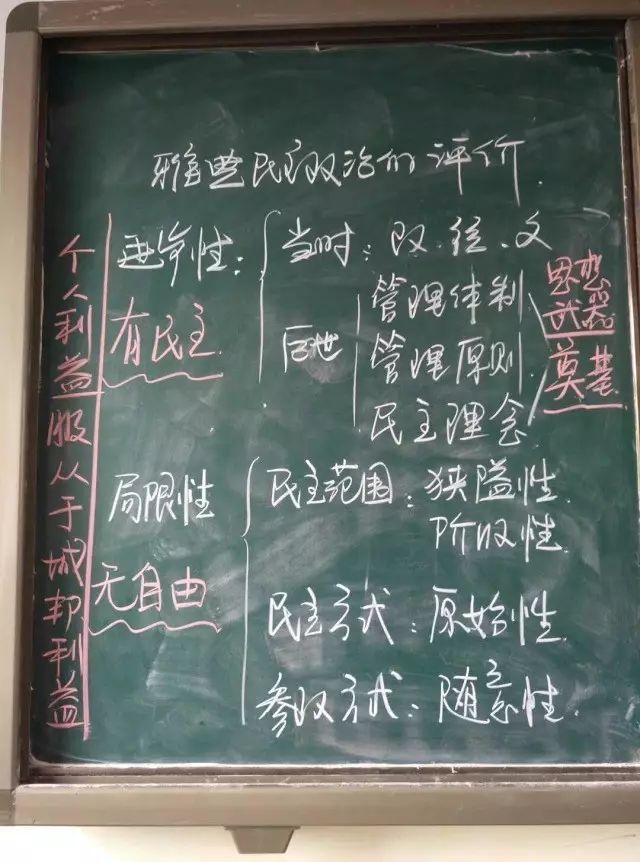 雅典民主政治的评价
个人利益服从于城邦利益
进步性：
有民主
当时：政、经、文
后世
管理体制
管理原则
民主理念
思想
武器
奠基
局限性
无自由
民主范围：狭隘性
阶级性
民主方式：原始性
参政方式：随意性